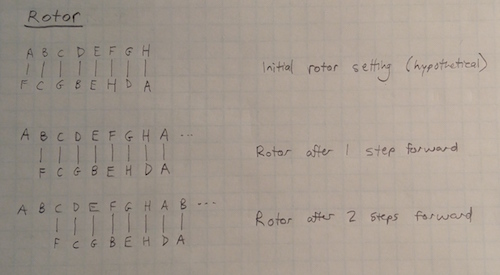 Rotor
A B C D E F G H
F C G B E H D A
Initial rotor setting (hypothetical)
A B C D E F G H A ...
F C G B E H D A
Rotor after 1 step forward
A B C D E F G H A B ...
F C G B E H D A
Rotor after 2 steps forward